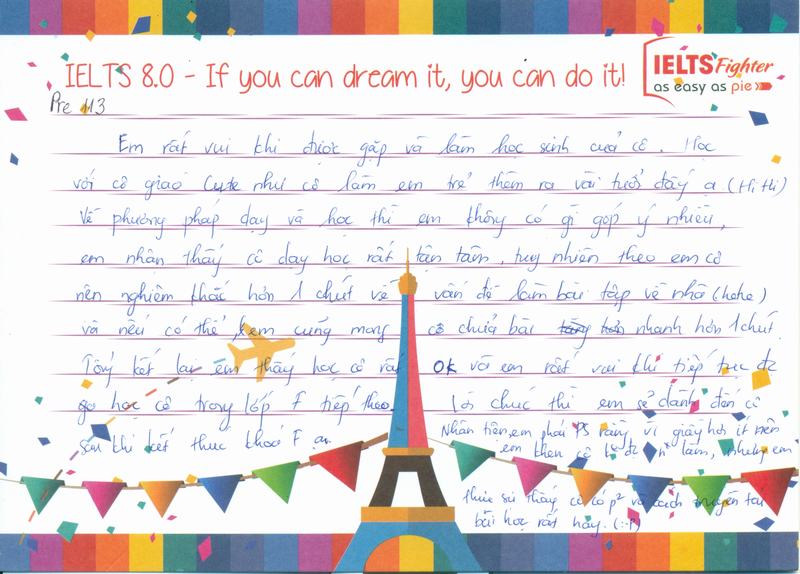 IELTS 8.0 - If you can dream it, you can do it!
IELTS Fighter
as easy as pie
Pre 113
Em rất vui khi được gặp và làm học sinh của cô. Học
với cô giáo cute như cô làm em trẻ thêm ra vài tuổi đấy ạ (Hihi)
Về phương pháp dạy và học thì em không có gì góp ý nhiều,
em nhận thấy cô dạy học rất tận tâm, tuy nhiên theo em cô
nên nghiêm khắc hơn 1 chút về vấn đề làm bài tập về nhà (hehe)
và nếu có thể, em cũng mong cô chữa bài nhanh hơn 1 chút
Tổng kết lại em thấy học cô rất OK và em rất vui khi tiếp tục đc
học cô trong lớp F tiếp theo. Lời chúc thì em sẽ dành đến cô
sau khi kết thúc khoá F ạ.
Nhân tiện, em phải PS rằng vì giấy hơi ít nên
em khen cô k đc n lắm, nhưng em
thực sự thấy cô có p² và cách truyền tải
bài học rất hay. (:P)